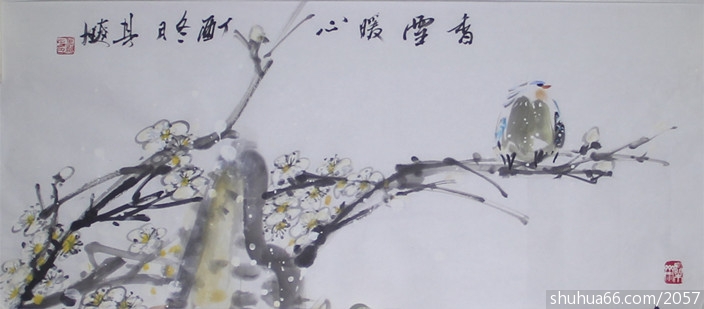 香雪暖心 丁酉冬日 其
shuhua66.com/2057